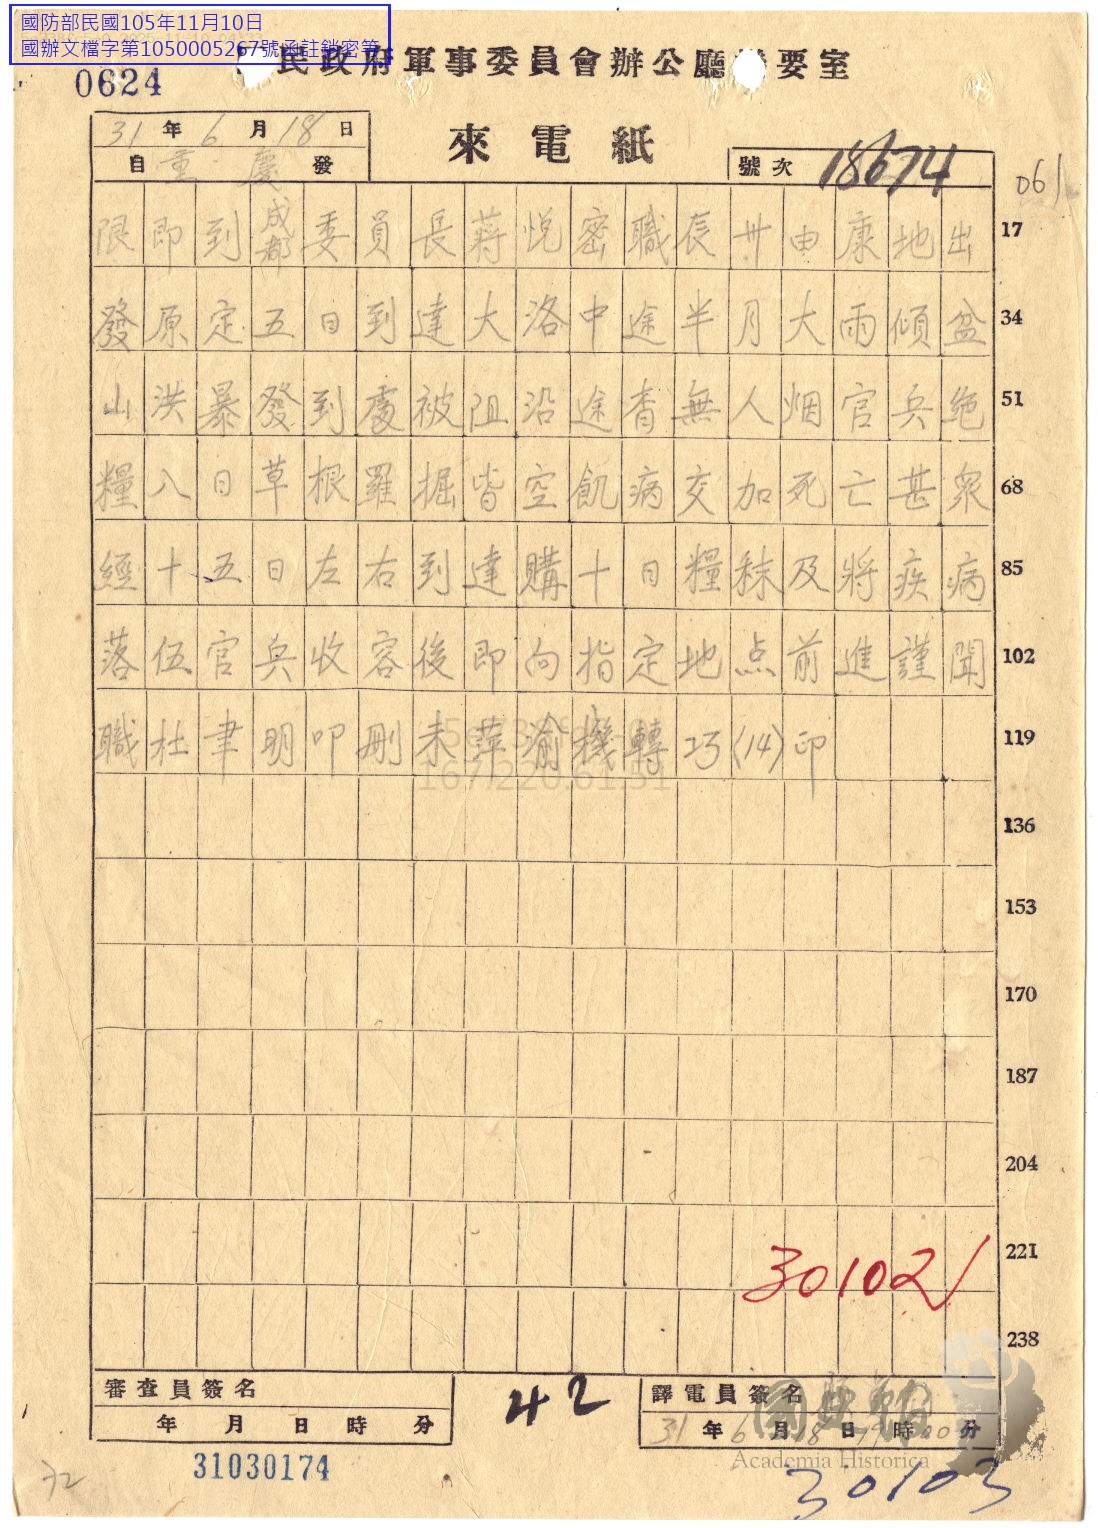 國防部民國105年11月10日
國辦文檔字第1050005267號函註銷密等
0624
民政府軍事委員會辦公廳 要室
31年6月18日
自重慶發
來電紙
號次 18674
061
限即到成都委員長蔣悅密職辰卅由康地出 17
發原定五日到達大洛中途半月大雨傾盆 34
山洪暴發到處被阻沿途杳無人烟官兵絶 51
糧八日草根羅掘皆空飢病交加死亡甚眾 68
經十五日左右到達購十日糧秣及將疾病 85
落伍官兵收容後即向指定地点前進謹聞 102
職杜聿明叩刪未萍渝機轉巧(14)印 119
167.220.61.51
136
153
170
187
204
221
30102
238
審查員簽名
年 月 日 時 分
42
譯電員簽名
31年6月18日19時00分
國史館
Academia Historica
31030174
30103
72